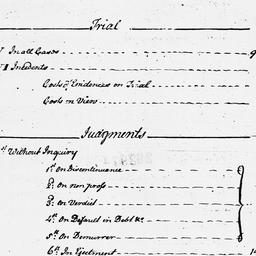 Trial
V In all Cases
VI Incidents
Costs of Evidences on Trial
Costs on View
Judgments
1st Without Inquiry
1st On Discontinuance
2d On non pross
3d On Verdict
4th On Default in Debt &c
5th On Demurrer
6th In Ejectment